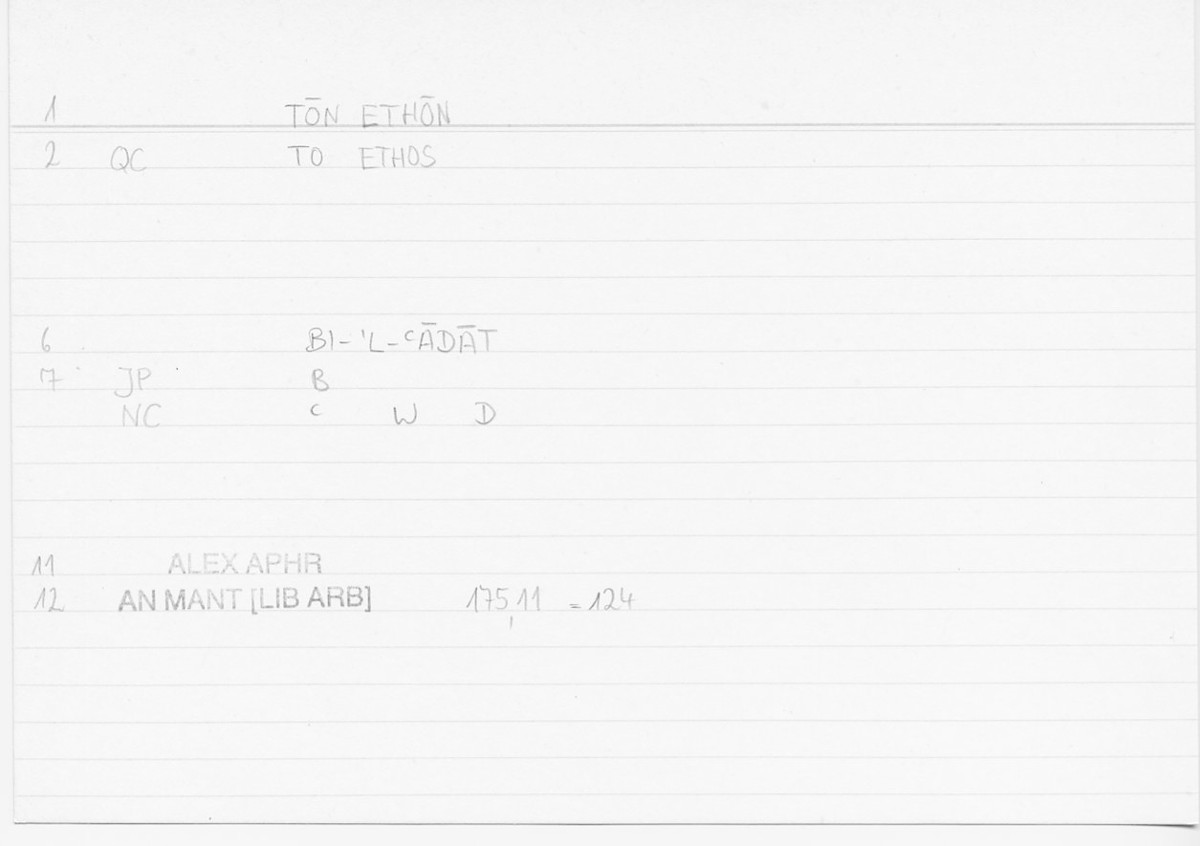 1 TŌN ETHŌN
2 QC TO ETHOS
6 BI-'L-ʿĀDĀT
7 JP B
NC ʿ W D
11 ALEX APHR
12 AN MANT [LIB ARB] 175,11 =124